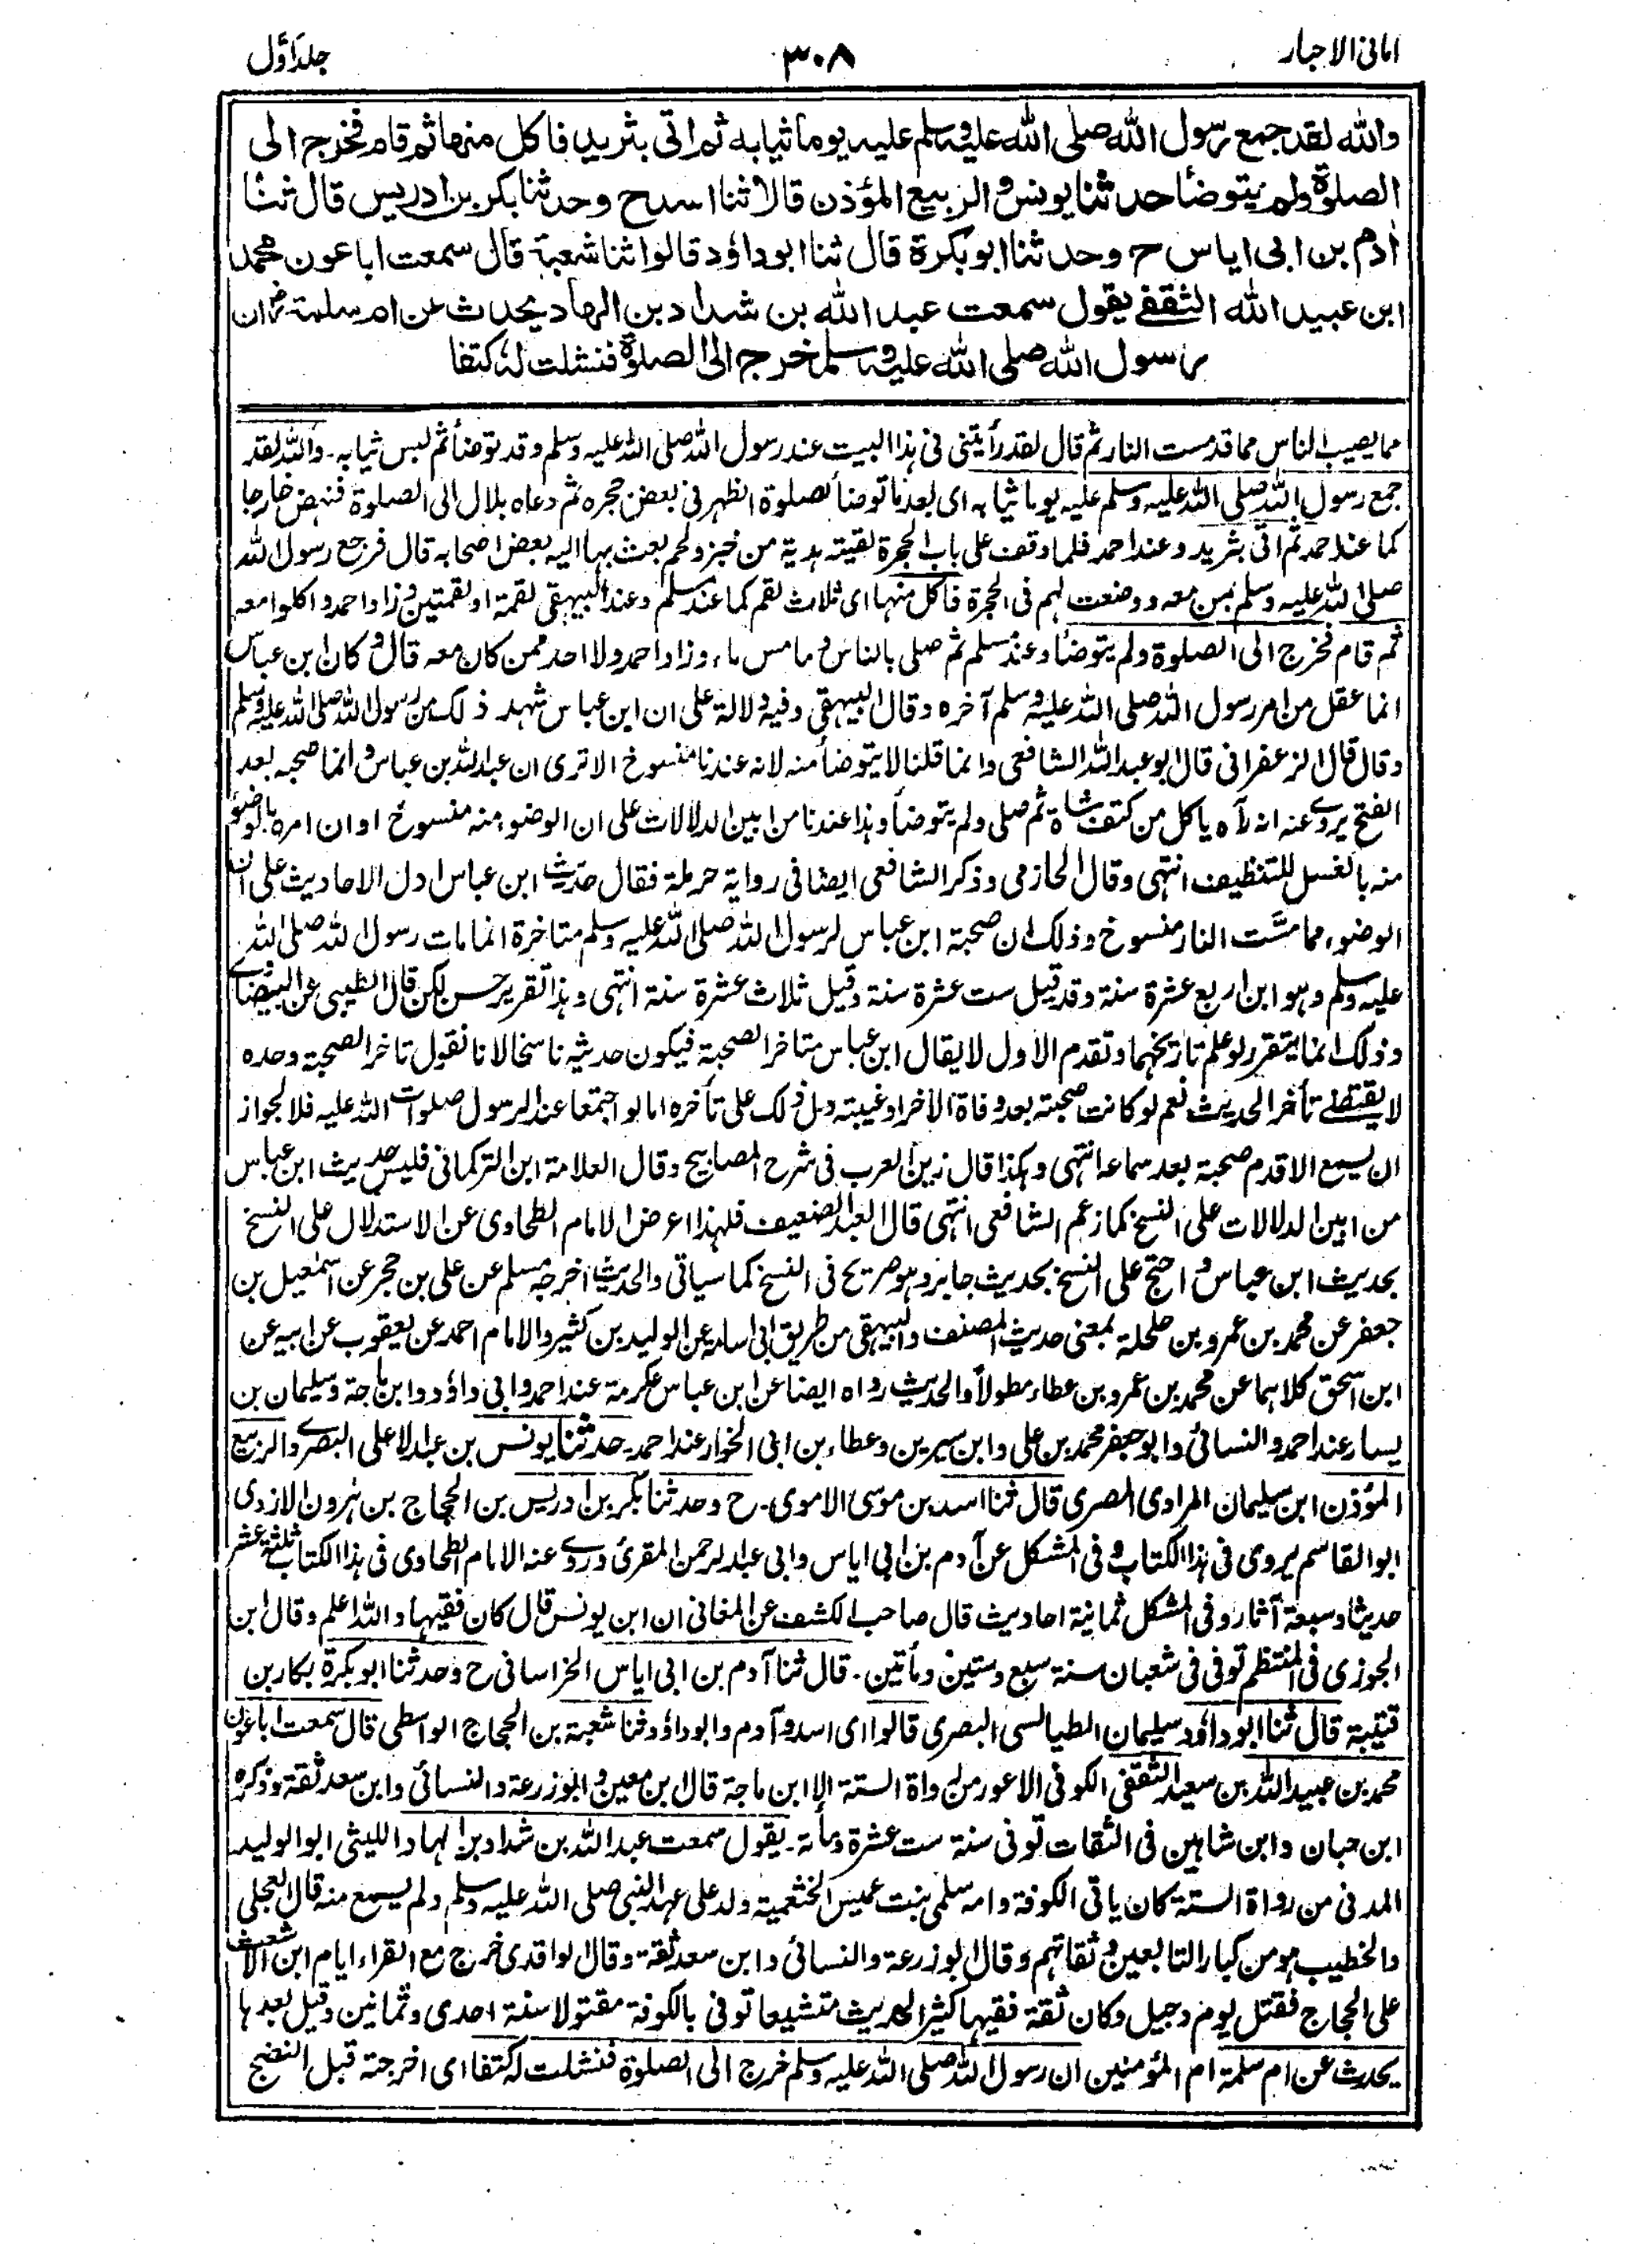 امانی الاحبار
۳۰۸
جلد اوّل
والله لقد جمع رسول الله صلى الله عليه وسلم عليه يوما ثيابه ثم اتى بثريد فاكل منها ثم قام فخرج الى
الصلوة ولم يتوضأ حدثنا يونس والربيع المؤذن قالا ثنا اسد ح وحدثنا بكر بن ادريس قال ثنا
اٰدم بن ابى اياس ح وحدثنا ابو بكرة قال ثنا ابو داؤد قالوا ثنا شعبة قال سمعت ابا عون محمد
ابن عبيد الله الثقفى يقول سمعت عبد الله بن شداد بن الهاد يحدث عن ام سلمة ان
رسول الله صلى الله عليه وسلم خرج الى الصلوة فنشلت له كتفا
مما يصيب الناس مما قد مست النار ثم قال لقد رأيتنى فى هذا البيت عند رسول الله صلى الله عليه وسلم وقد توضأ ثم لبس ثيابه۔ والله لقد
جمع رسول الله صلى الله عليه وسلم عليه يوما ثيابه اى بعد ما توضأ لصلوة الظهر فى بعض حجره ثم دعاه بلال الى الصلوة فنهض خارجا
كما عند احمد ثم اتى بثريد وعند احمد فلما وقف على باب الحجرة لقيته هدية من خبز ولحم بعث بها اليه بعض اصحابه قال فرجع رسول الله
صلى الله عليه وسلم بمن معه ووضعت لهم فى الحجرة فاكل منها اى ثلاث لقم كما عند مسلم وعند البيهقى لقمة او لقمتين وزاد احمد واكلوا معه
ثم قام فخرج الى الصلوة ولم يتوضأ وعند مسلم ثم صلى بالناس وما مس ماء وزاد احمد ولا احد ممن كان معه قال وكان ابن عباس
انما عقل من امر رسول الله صلى الله عليه وسلم آخره وقال البيهقى وفيه دلالة على ان ابن عباس شهد ذلك من رسول الله صلى الله عليه وسلم
وقال قال الزعفرانى قال ابو عبد الله الشافعى وانما قلنا لا يتوضأ منه لانه عندنا منسوخ الا ترى ان عبد الله بن عباس وانما صحبه بعد
الفتح يروى عنه انه رآه ياكل من كتف شاة ثم صلى ولم يتوضأ وهذا عندنا من ابين الدلالات على ان الوضوء منه منسوخ او ان امره بالوضوء
منه بالغسل للتنظيف انتهى وقال الحازمى وذكر الشافعى ايضا فى رواية حرملة فقال حديث ابن عباس ادل الاحاديث على ان
الوضوء مما مسّت النار منسوخ وذلك ان صحبة ابن عباس لرسول الله صلى الله عليه وسلم متاخرة انما مات رسول الله صلى الله
عليه وسلم وهو ابن اربع عشرة سنة وقد قيل ست عشرة سنة وقيل ثلاث عشرة سنة انتهى وهذا تقرير حسن لكن قال الطيبى عن البيضاوى
وذلك انما يتقرر لو علم تاريخهما وتقدم الاول لا يقال ابن عباس متاخر الصحبة فيكون حديثه ناسخا لانا نقول تاخر الصحبة وحده
لا يقتضى تأخر الحديث نعم لو كانت صحبته بعد وفاة الآخر او غيبته دل ذلك على تأخره اما لو اجتمعا عند الرسول صلوات الله عليه فلا لجواز
ان يسمع الاقدم صحبة بعد سماعه انتهى وهكذا قال زين العرب فى شرح المصابيح وقال العلامة ابن التركمانى فليس حديث ابن عباس
من ابين الدلالات على النسخ كما زعم الشافعى انتهى قال العبد الضعيف فلهذا اعرض الامام الطحاوى عن الاستدلال على النسخ
بحديث ابن عباس واحتج على النسخ بحديث جابر وهو صريح فى النسخ كما سياتى والحديث اخرجه مسلم عن على بن حجر عن اسمٰعيل بن
جعفر عن محمد بن عمرو بن حلحلة بمعنى حديث المصنف والبيهقى من طريق ابى اسامة عن الوليد بن كثير والامام احمد عن يعقوب عن ابيه عن
ابن اسحق كلاهما عن محمد بن عمرو بن عطاء مطولا والحديث رواه ايضا عن ابن عباس عكرمة عند احمد وابى داؤد وابن ماجة وسليمان بن
يسار عند احمد والنسائى وابو جعفر محمد بن على وابن سيرين وعطاء بن ابى الخوار عند احمد۔ حدثنا يونس بن عبد الاعلى البصرى والربيع
المؤذن ابن سليمان المرادى المصرى قال ثنا اسد بن موسى الاموى۔ ح وحدثنا بكر بن ادريس بن الحجاج بن هٰرون الازدى
ابو القاسم يروى فى هذا الكتاب وفى المشكل عن آدم بن ابى اياس وابى عبد الرحمن المقرئ وروى عنه الامام الطحاوى فى هذا الكتاب ثلثة عشر
حديثا وسبعة آثار وفى المشكل ثمانية احاديث قال صاحب الكشف عن المغانى ان ابن يونس قال كان فقيها والله اعلم وقال ابن
الجوزى فى المنتظم توفى فى شعبان سنة سبع وستين ومأتين۔ قال ثنا آدم بن ابى اياس الخراسانى ح وحدثنا ابو بكرة بكار بن
قتيبة قال ثنا ابو داؤد سليمان الطيالسى البصرى قالوا اى اسد وآدم وابو داؤد ثنا شعبة بن الحجاج الواسطى قال سمعت ابا عون
محمد بن عبيد الله بن سعيد الثقفى الكوفى الاعور من رواة الستة الا ابن ماجة قال ابن معين وابو زرعة والنسائى وابن سعد ثقة وذكره
ابن حبان وابن شاهين فى الثقات توفى سنة ست عشرة ومأة۔ يقول سمعت عبد الله بن شداد بن الهاد الليثى ابو الوليد
المدنى من رواة الستة كان ياتى الكوفة وامه سلمى بنت عميس الخثعمية ولد على عهد النبى صلى الله عليه وسلم ولم يسمع منه قال العجلى
والخطيب هو من كبار التابعين وثقاتهم وقال ابو زرعة والنسائى وابن سعد ثقة وقال الواقدى خرج مع القراء ايام ابن الاشعث
على الحجاج فقتل يوم دجيل وكان ثقة فقيها كثير الحديث متشيعا توفى بالكوفة مقتولا سنة احدى وثمانين وقيل بعدها
يحدث عن ام سلمة ام المؤمنين ان رسول الله صلى الله عليه وسلم خرج الى الصلوة فنشلت له كتفا اى اخرجته قبل النضج